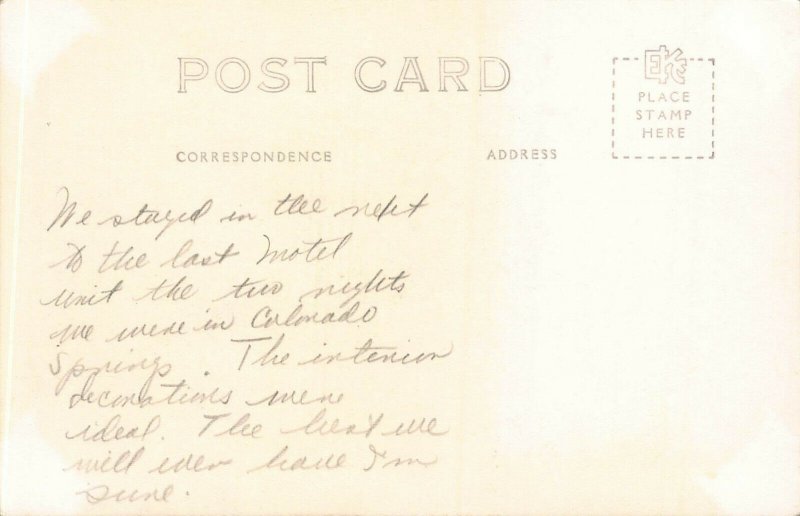 POST CARD
EKC
PLACE
STAMP
HERE
CORRESPONDENCE
ADDRESS
We stayed in the next
to the last Motel
unit the two nights
we were in Colorado
Springs. The interior
decorations were
ideal. The best we
will ever have I'm
sure.